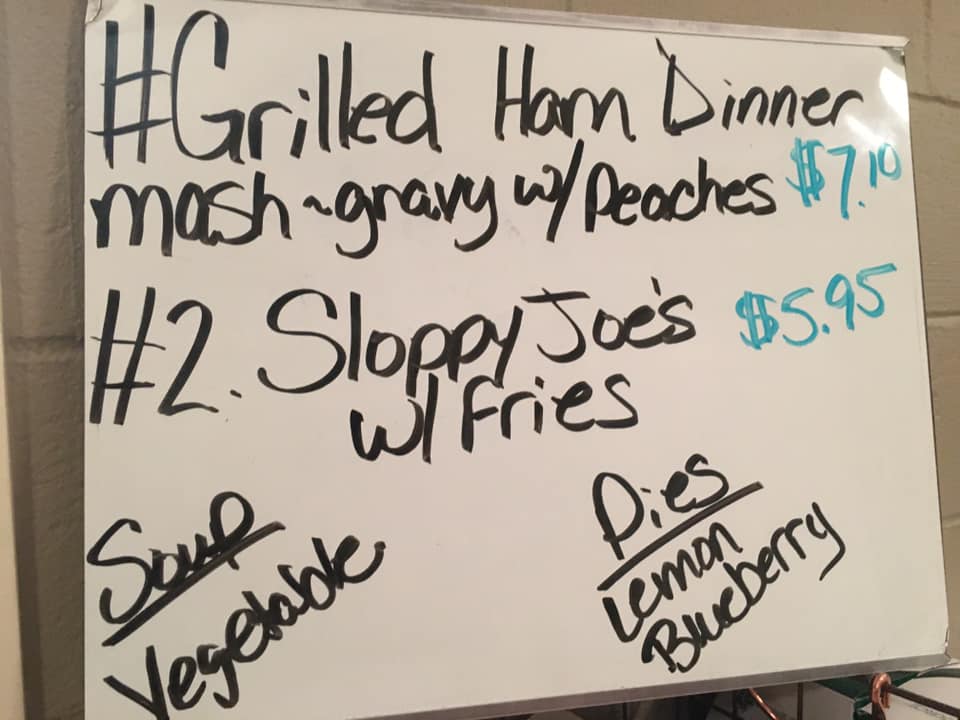 #Grilled Ham Dinner
mash~gravy w/ Peaches $7.10
#2. Sloppy Joe's $5.95
w/ Fries
Soup
Vegetable
Pies
Lemon
Blueberry